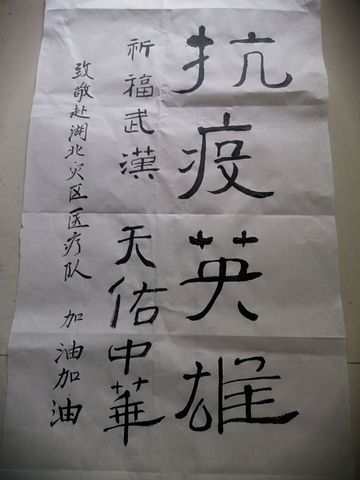 抗疫英雄
祈福武漢 天佑中華
致敬赴湖北灾区医疗队 加油加油